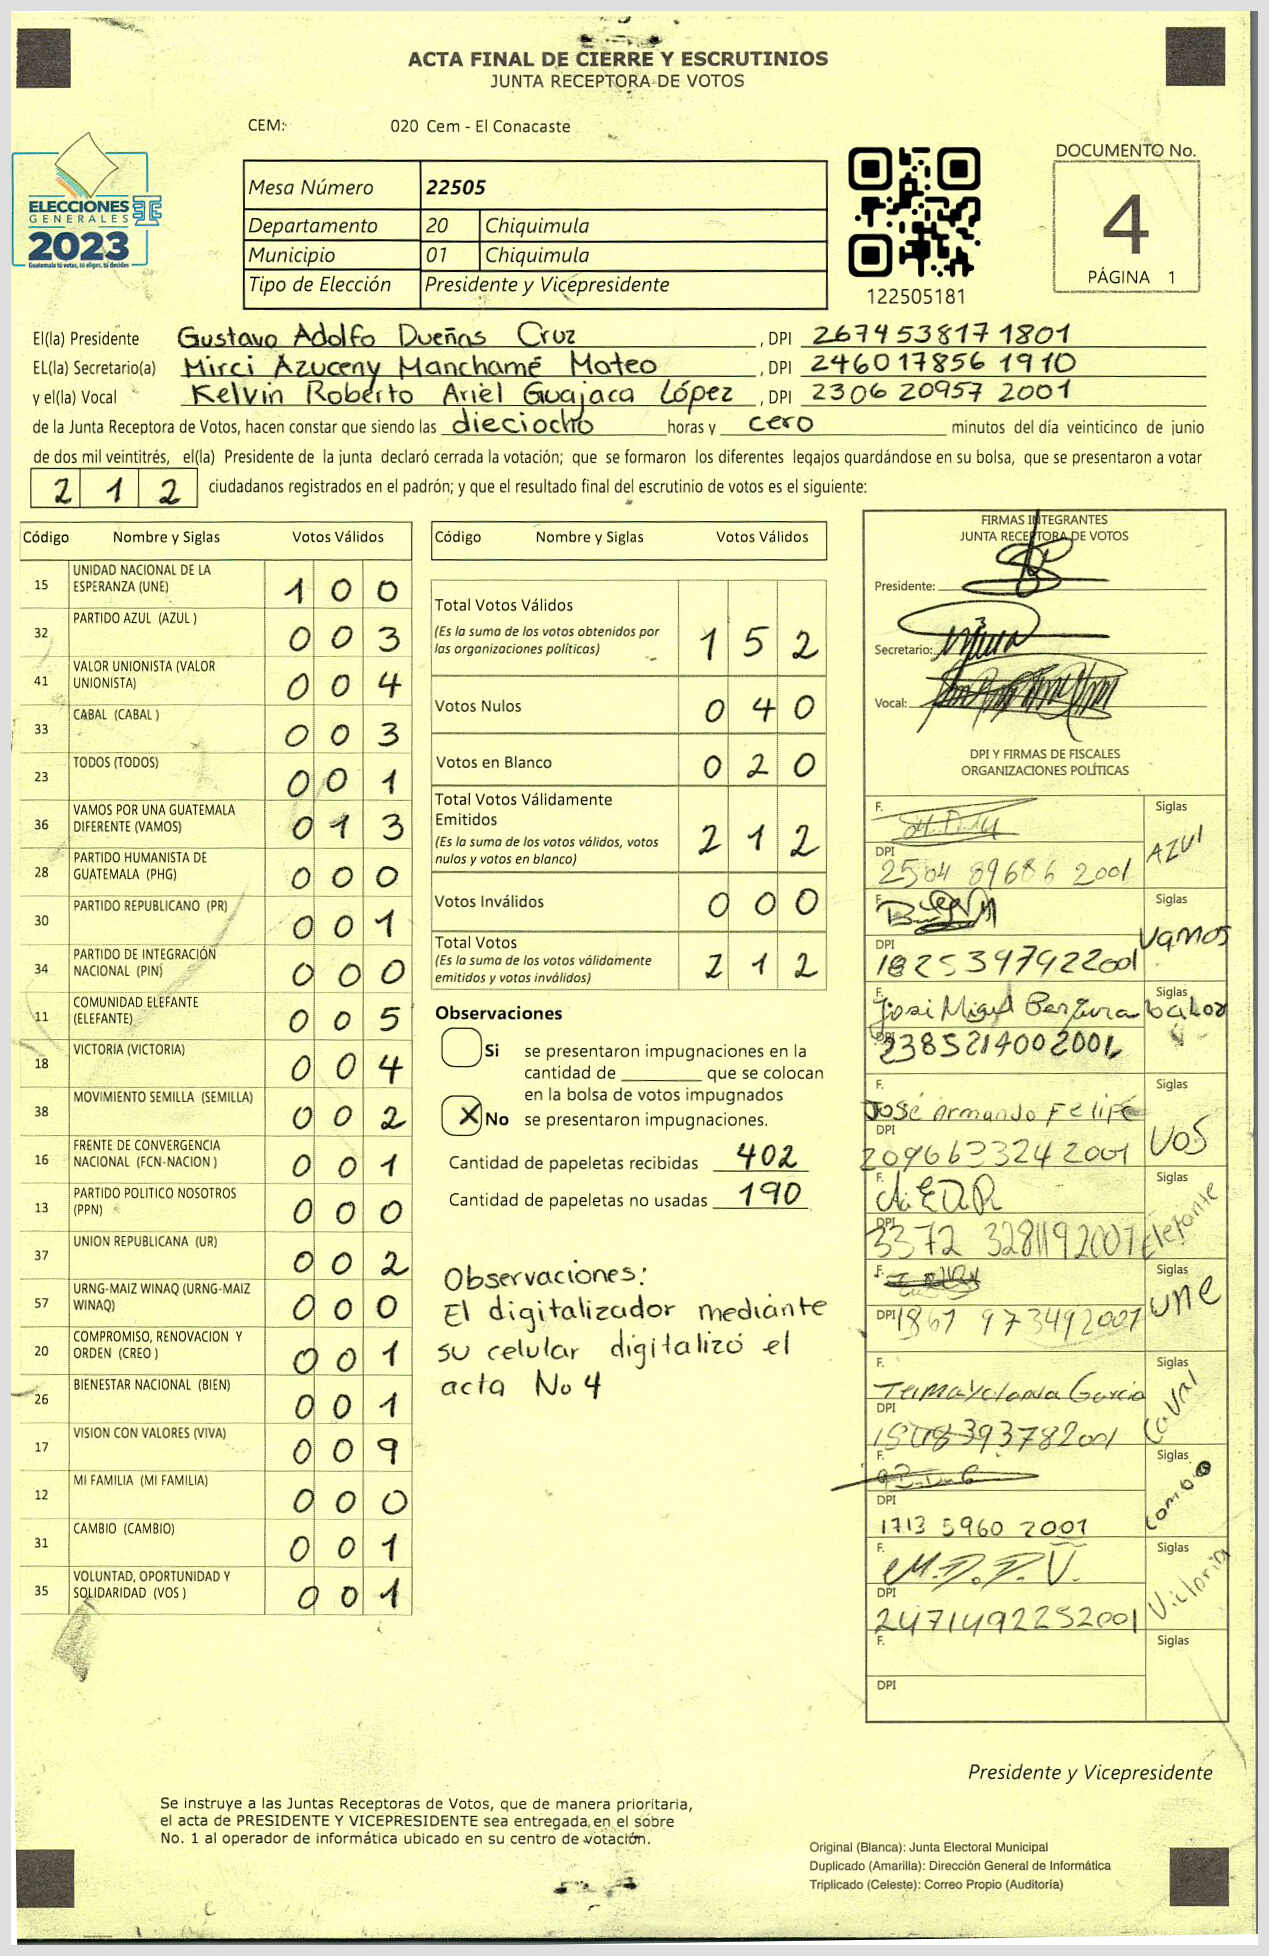 ACTA FINAL DE CIERRE Y ESCRUTINIOS
JUNTA RECEPTORA DE VOTOS
CEM: 020 Cem - El Conacaste
ELECCIONES
GENERALES
2023
Guatemala tú votas, tú eliges, tú decides
Mesa Número 22505
Departamento 20 Chiquimula
Municipio 01 Chiquimula
Tipo de Elección Presidente y Vicepresidente
122505181
DOCUMENTO No.
4
PÁGINA 1
El(la) Presidente Gustavo Adolfo Dueñas Cruz , DPI 2674538171801
EL(la) Secretario(a) Mirci Azuceny Manchamé Mateo , DPI 2460178561910
y el(la) Vocal Kelvin Roberto Ariel Guajaca López , DPI 2306209572001
de la Junta Receptora de Votos, hacen constar que siendo las dieciocho horas y cero minutos del día veinticinco de junio
de dos mil veintitrés, el(la) Presidente de la junta declaró cerrada la votación; que se formaron los diferentes legajos guardándose en su bolsa, que se presentaron a votar
212 ciudadanos registrados en el padrón; y que el resultado final del escrutinio de votos es el siguiente:
Código Nombre y Siglas Votos Válidos
15 UNIDAD NACIONAL DE LA ESPERANZA (UNE) 1 0 0
32 PARTIDO AZUL (AZUL ) 0 0 3
41 VALOR UNIONISTA (VALOR UNIONISTA) 0 0 4
33 CABAL (CABAL ) 0 0 3
23 TODOS (TODOS) 0 0 1
36 VAMOS POR UNA GUATEMALA DIFERENTE (VAMOS) 0 1 3
28 PARTIDO HUMANISTA DE GUATEMALA (PHG) 0 0 0
30 PARTIDO REPUBLICANO (PR) 0 0 1
34 PARTIDO DE INTEGRACIÓN NACIONAL (PIN) 0 0 0
11 COMUNIDAD ELEFANTE (ELEFANTE) 0 0 5
18 VICTORIA (VICTORIA) 0 0 4
38 MOVIMIENTO SEMILLA (SEMILLA) 0 0 2
16 FRENTE DE CONVERGENCIA NACIONAL (FCN-NACION ) 0 0 1
13 PARTIDO POLITICO NOSOTROS (PPN) 0 0 0
37 UNION REPUBLICANA (UR) 0 0 2
57 URNG-MAIZ WINAQ (URNG-MAIZ WINAQ) 0 0 0
20 COMPROMISO, RENOVACION Y ORDEN (CREO ) 0 0 1
26 BIENESTAR NACIONAL (BIEN) 0 0 1
17 VISION CON VALORES (VIVA) 0 0 9
12 MI FAMILIA (MI FAMILIA) 0 0 0
31 CAMBIO (CAMBIO) 0 0 1
35 VOLUNTAD, OPORTUNIDAD Y SOLIDARIDAD (VOS ) 0 0 1
Código Nombre y Siglas Votos Válidos
Total Votos Válidos 1 5 2
(Es la suma de los votos obtenidos por
las organizaciones políticas)
Votos Nulos 0 4 0
Votos en Blanco 0 2 0
Total Votos Válidamente
Emitidos 2 1 2
(Es la suma de los votos válidos, votos
nulos y votos en blanco)
Votos Inválidos 0 0 0
Total Votos 2 1 2
(Es la suma de los votos válidamente
emitidos y votos inválidos)
Observaciones
Si se presentaron impugnaciones en la
cantidad de ________ que se colocan
en la bolsa de votos impugnados
X No se presentaron impugnaciones.
Cantidad de papeletas recibidas 402
Cantidad de papeletas no usadas 190
Observaciones:
El digitalizador mediante
su celular digitalizó el
acta No 4
FIRMAS INTEGRANTES
JUNTA RECEPTORA DE VOTOS
Presidente:
Secretario:
Vocal:
DPI Y FIRMAS DE FISCALES
ORGANIZACIONES POLÍTICAS
F. Siglas AZUL
DPI 2504 89686 2001
F. Siglas Vamos
DPI 1825397922001
F. Siglas
DPI 2385214002001
F. José Armando Felipe Siglas VOS
DPI 2096633242001
F. Siglas Elefante
DPI 3372 3281192001
F. Siglas une
DPI 1867 973492001
F. Siglas
DPI
F. Siglas
DPI 1713 5960 2001
F. M.D.P.V. Siglas Victoria
DPI 2471492252001
F. Siglas
DPI
Presidente y Vicepresidente
Se instruye a las Juntas Receptoras de Votos, que de manera prioritaria,
el acta de PRESIDENTE Y VICEPRESIDENTE sea entregada en el sobre
No. 1 al operador de informática ubicado en su centro de votación.
Original (Blanca): Junta Electoral Municipal
Duplicado (Amarilla): Dirección General de Informática
Triplicado (Celeste): Correo Propio (Auditoría)